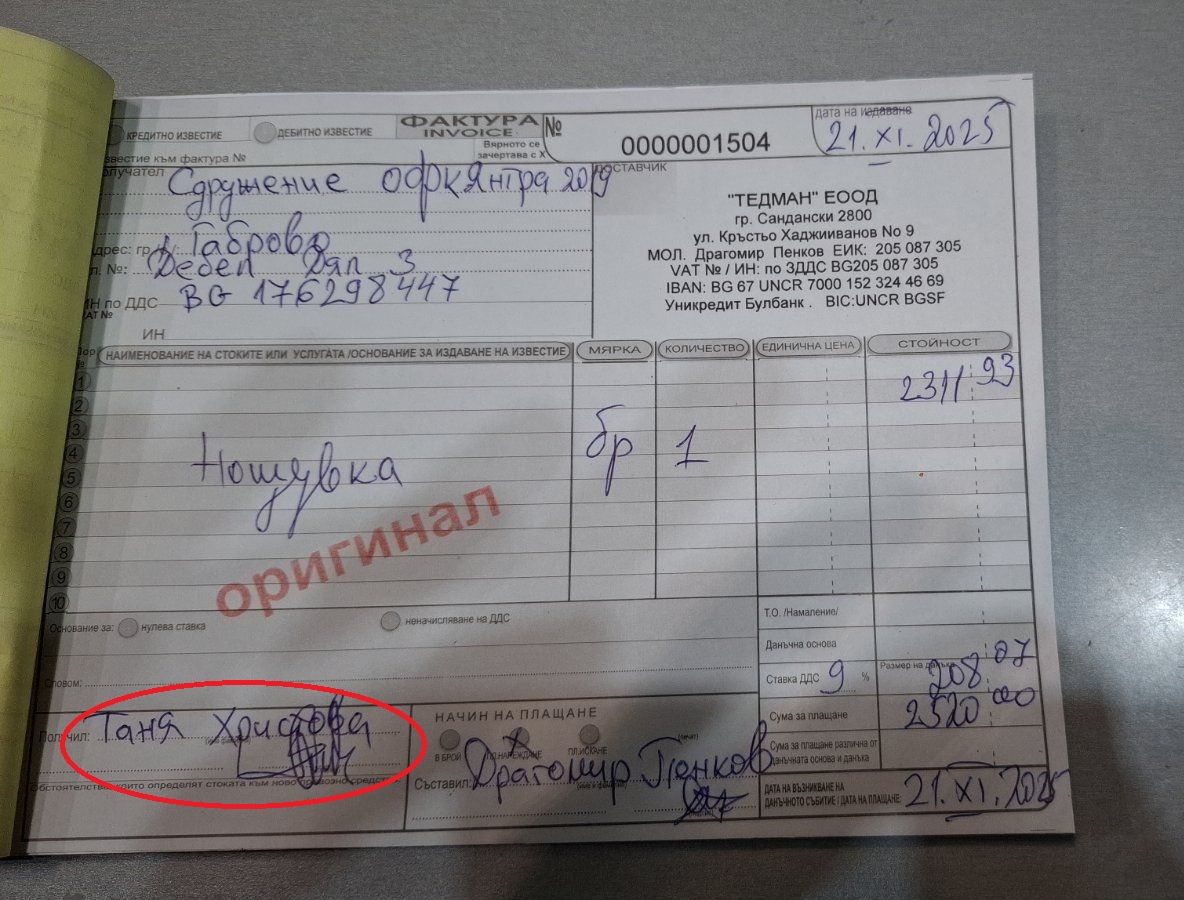 КРЕДИТНО ИЗВЕСТИЕ ДЕБИТНО ИЗВЕСТИЕ
ФАКТУРА
INVOICE
Вярното се
зачертава с X
№ 0000001504
дата на издаване
21. XI. 2025
известие към фактура №
получател Сдружение ОФК Янтра 2019
Адрес: гр. Габрово
Дебел Дял 3
ИН по ДДС BG 176298447
VAT №
ИН
ДОСТАВЧИК
"ТЕДМАН" ЕООД
гр. Сандански 2800
ул. Кръстьо Хаджииванов No 9
МОЛ. Драгомир Пенков ЕИК: 205 087 305
VAT № / ИН: по ЗДДС BG205 087 305
IBAN: BG 67 UNCR 7000 152 324 46 69
Уникредит Булбанк . BIC:UNCR BGSF
НАИМЕНОВАНИЕ НА СТОКИТЕ ИЛИ УСЛУГАТА /ОСНОВАНИЕ ЗА ИЗДАВАНЕ НА ИЗВЕСТИЕ МЯРКА КОЛИЧЕСТВО ЕДИНИЧНА ЦЕНА СТОЙНОСТ
1 2311 93
2
3
4 Нощувка бр 1
5
6
7
8
9
10
оригинал
Основание за: нулева ставка неначисляване на ДДС
Словом:
Т.О. /Намаление/
Данъчна основа
Ставка ДДС 9 % Размер на данъка 208 07
Сума за плащане 2520 00
Сума за плащане различна от
данъчната основа и данъка
Получил: Таня Христова
Обстоятелства, които определят стоката към
НАЧИН НА ПЛАЩАНЕ
В БРОЙ ПЛ.НАРЕЖДАНЕ ПЛ.ИСКАНЕ
Съставил: Драгомир Пенков
ДАТА НА ВЪЗНИКВАНЕ НА
ДАНЪЧНОТО СЪБИТИЕ / ДАТА НА ПЛАЩАНЕ: 21. XI. 2025